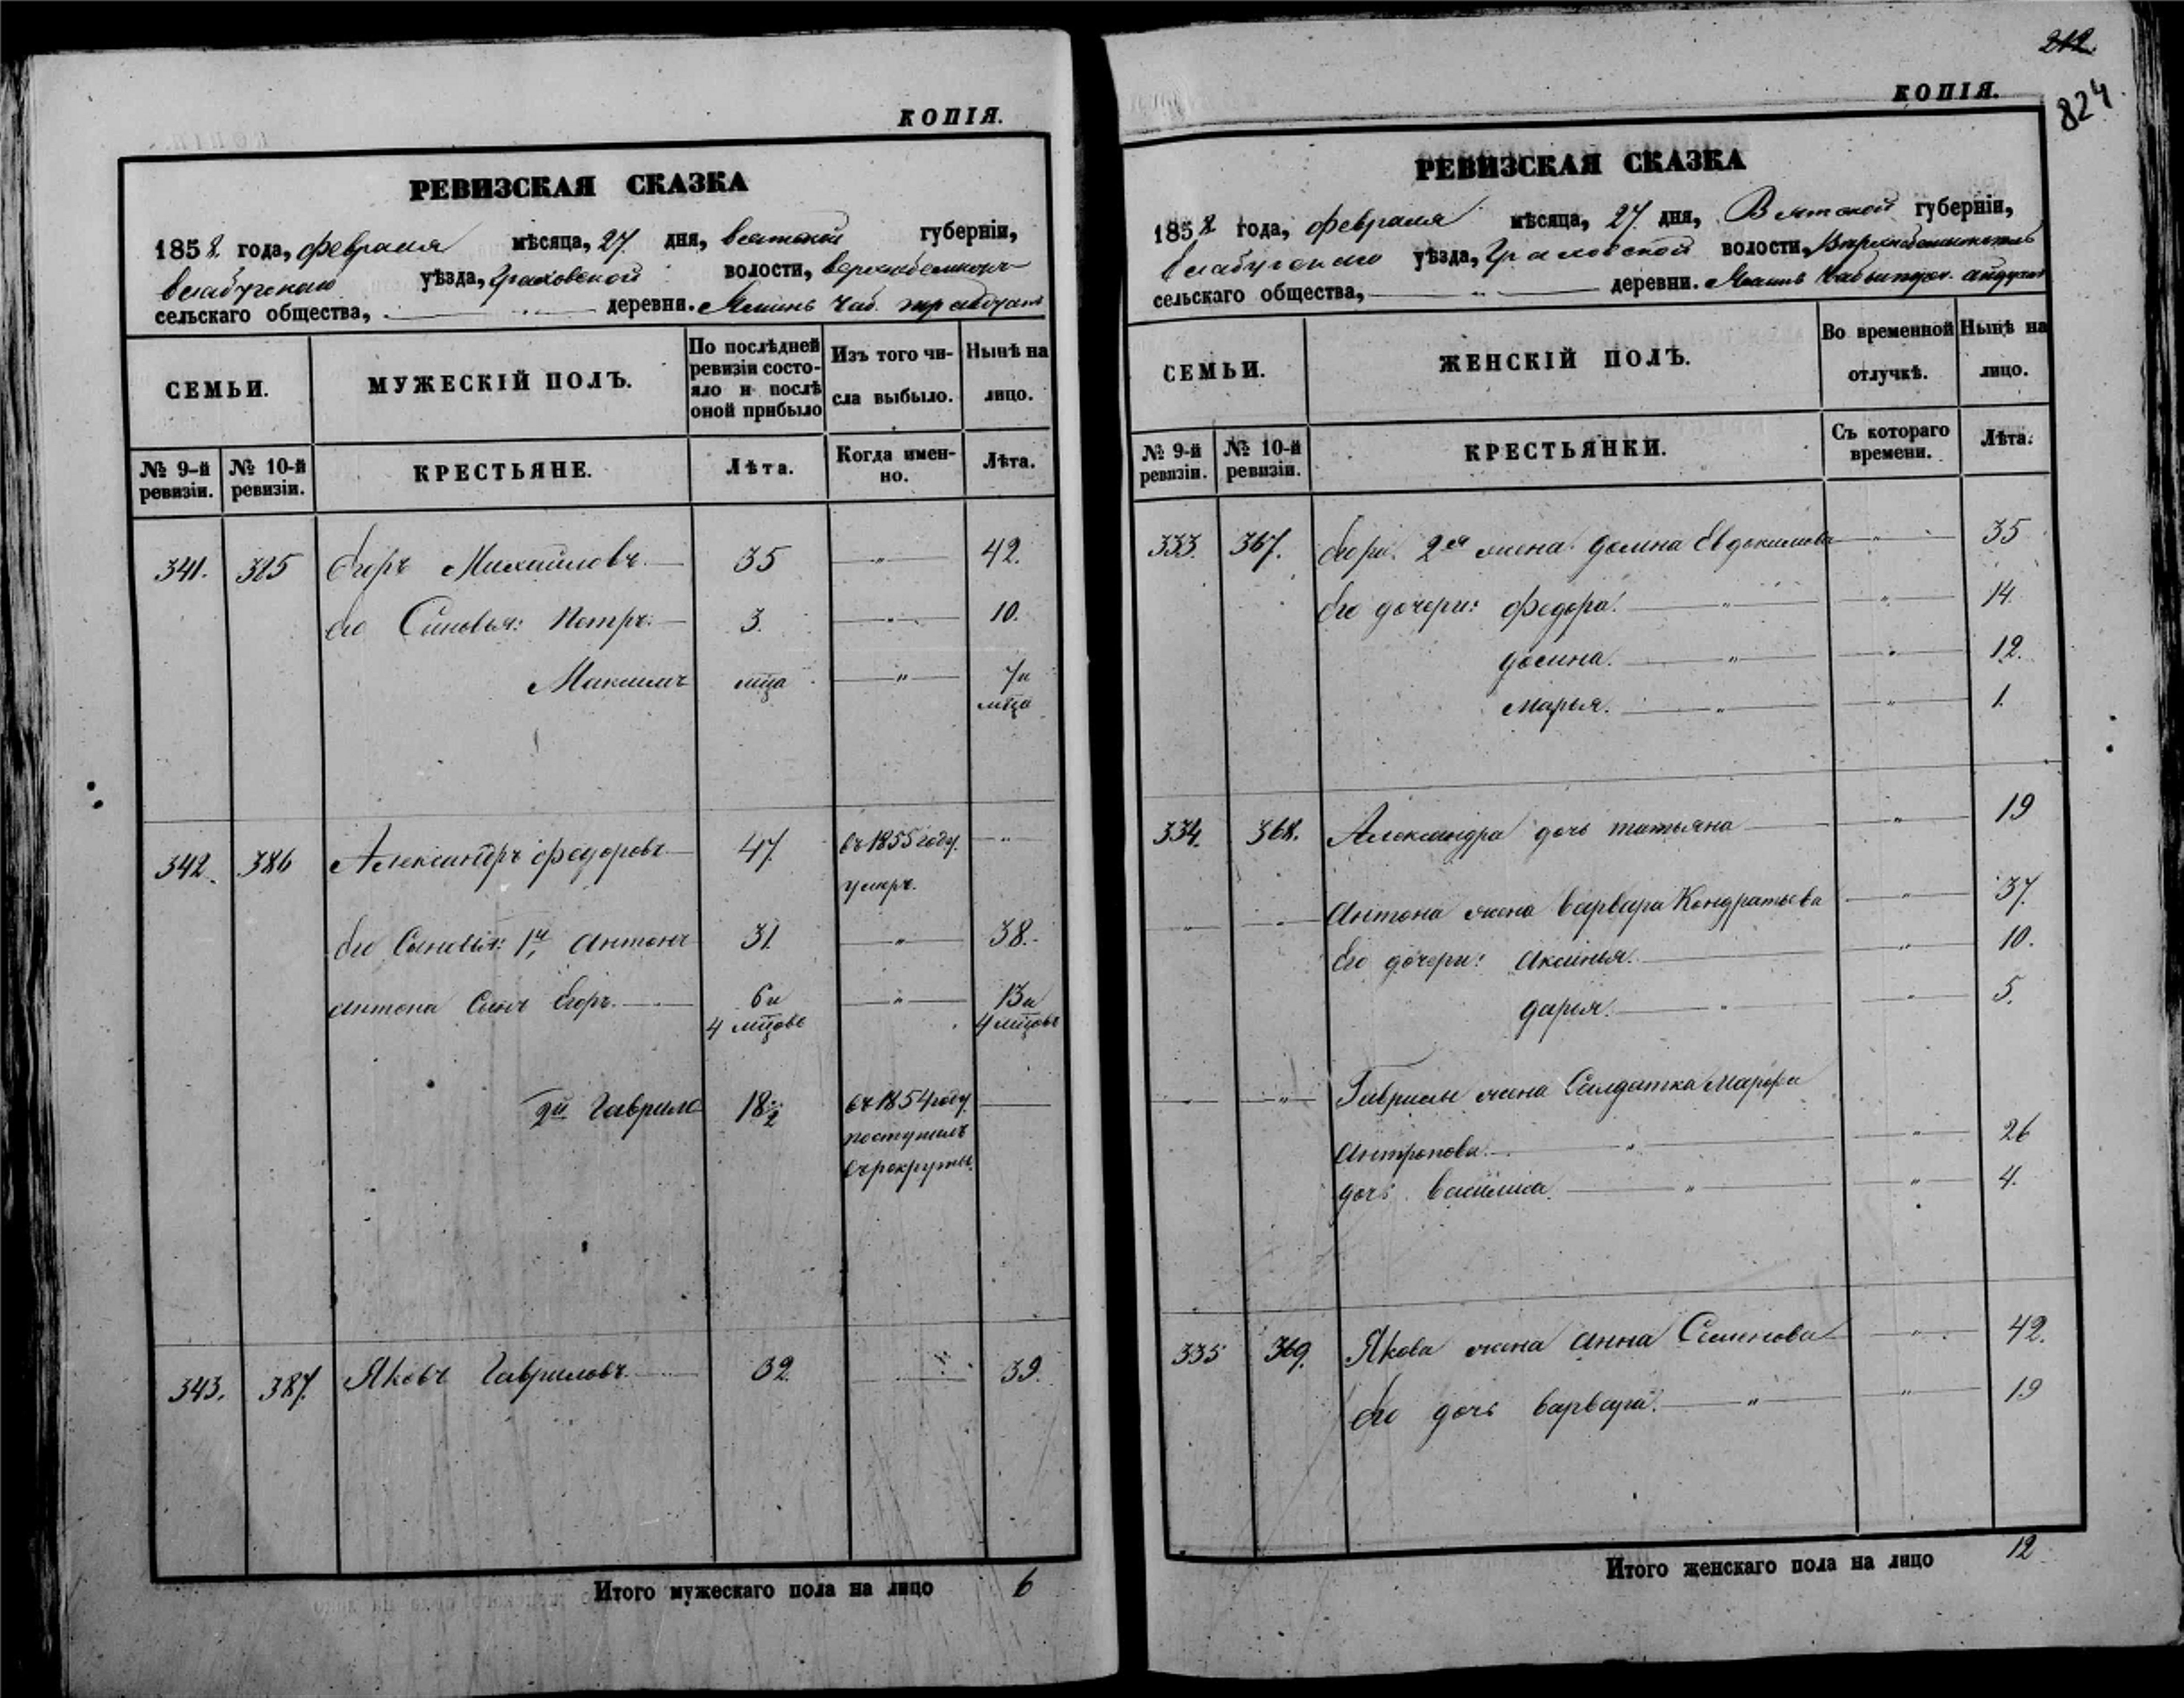 КОПІЯ.
РЕВИЗСКАЯ СКАЗКА
1858 года, февраля мѣсяца, 27 дня, Вятской губерніи,
Елабугскаго уѣзда, Граховской волости,
сельскаго общества, — „ — деревни.
СЕМЬИ.
МУЖЕСКІЙ ПОЛЪ.
По послѣдней ревизіи состояло и послѣ оной прибыло
Изъ того числа выбыло.
Нынѣ на лицо.
№ 9-й ревизіи.
№ 10-й ревизіи.
КРЕСТЬЯНЕ.
Лѣта.
Когда именно.
Лѣта.
341. 385 Егоръ Михайловъ — 35 — „ — 42.
его Сыновья: Петръ. — 3. — „ — 10.
Максимъ мца — „ — 7 и
мца
342. 386 Александръ Федоровъ — 47. въ 1855 году. — „
умеръ.
его Сыновья: 1й, Антонъ 31. — „ — 38.
Антона Сынъ Егоръ. — 6 и — „ — 13 и
4 мцовъ 4 мцовъ
2й Гаврило 18 1/2 въ 1854 году —
поступилъ
въ рекруты.
343. 387. Яковъ Гавриловъ. — 32 — „ — 39.
Итого мужескаго пола на лицо 6
212.
824.
КОПІЯ.
РЕВИЗСКАЯ СКАЗКА
1858 года, февраля мѣсяца, 27 дня, Вятской губерніи,
Елабугскаго уѣзда, Граховской волости,
сельскаго общества, — „ — деревни.
СЕМЬИ.
ЖЕНСКІЙ ПОЛЪ.
Во временной отлучкѣ.
Нынѣ на лицо.
№ 9-й ревизіи.
№ 10-й ревизіи.
КРЕСТЬЯНКИ.
Съ котораго времени.
Лѣта.
333. 367. Егора 2я жена домна Евдокимова — „ — 35
его дочери: Федора. — „ — „ — 14.
домна. — „ — „ — 12.
Марья. — „ — „ — 1.
334. 368. Александра дочь татьяна — „ — 19
— „ — „ — Антона жена варвара Кондратьева — „ — 37.
его дочери: Аксинья. — „ — 10.
дарья. — „ — „ — 5.
— „ — Гаврилы жена Салдатка Марфа
Антропова. — „ — „ — 26
дочь василиса. — „ — „ — 4.
335 369. Якова жена анна Семенова — „ — 42.
его дочь варвара. — „ — „ — 19
Итого женскаго пола на лицо 12